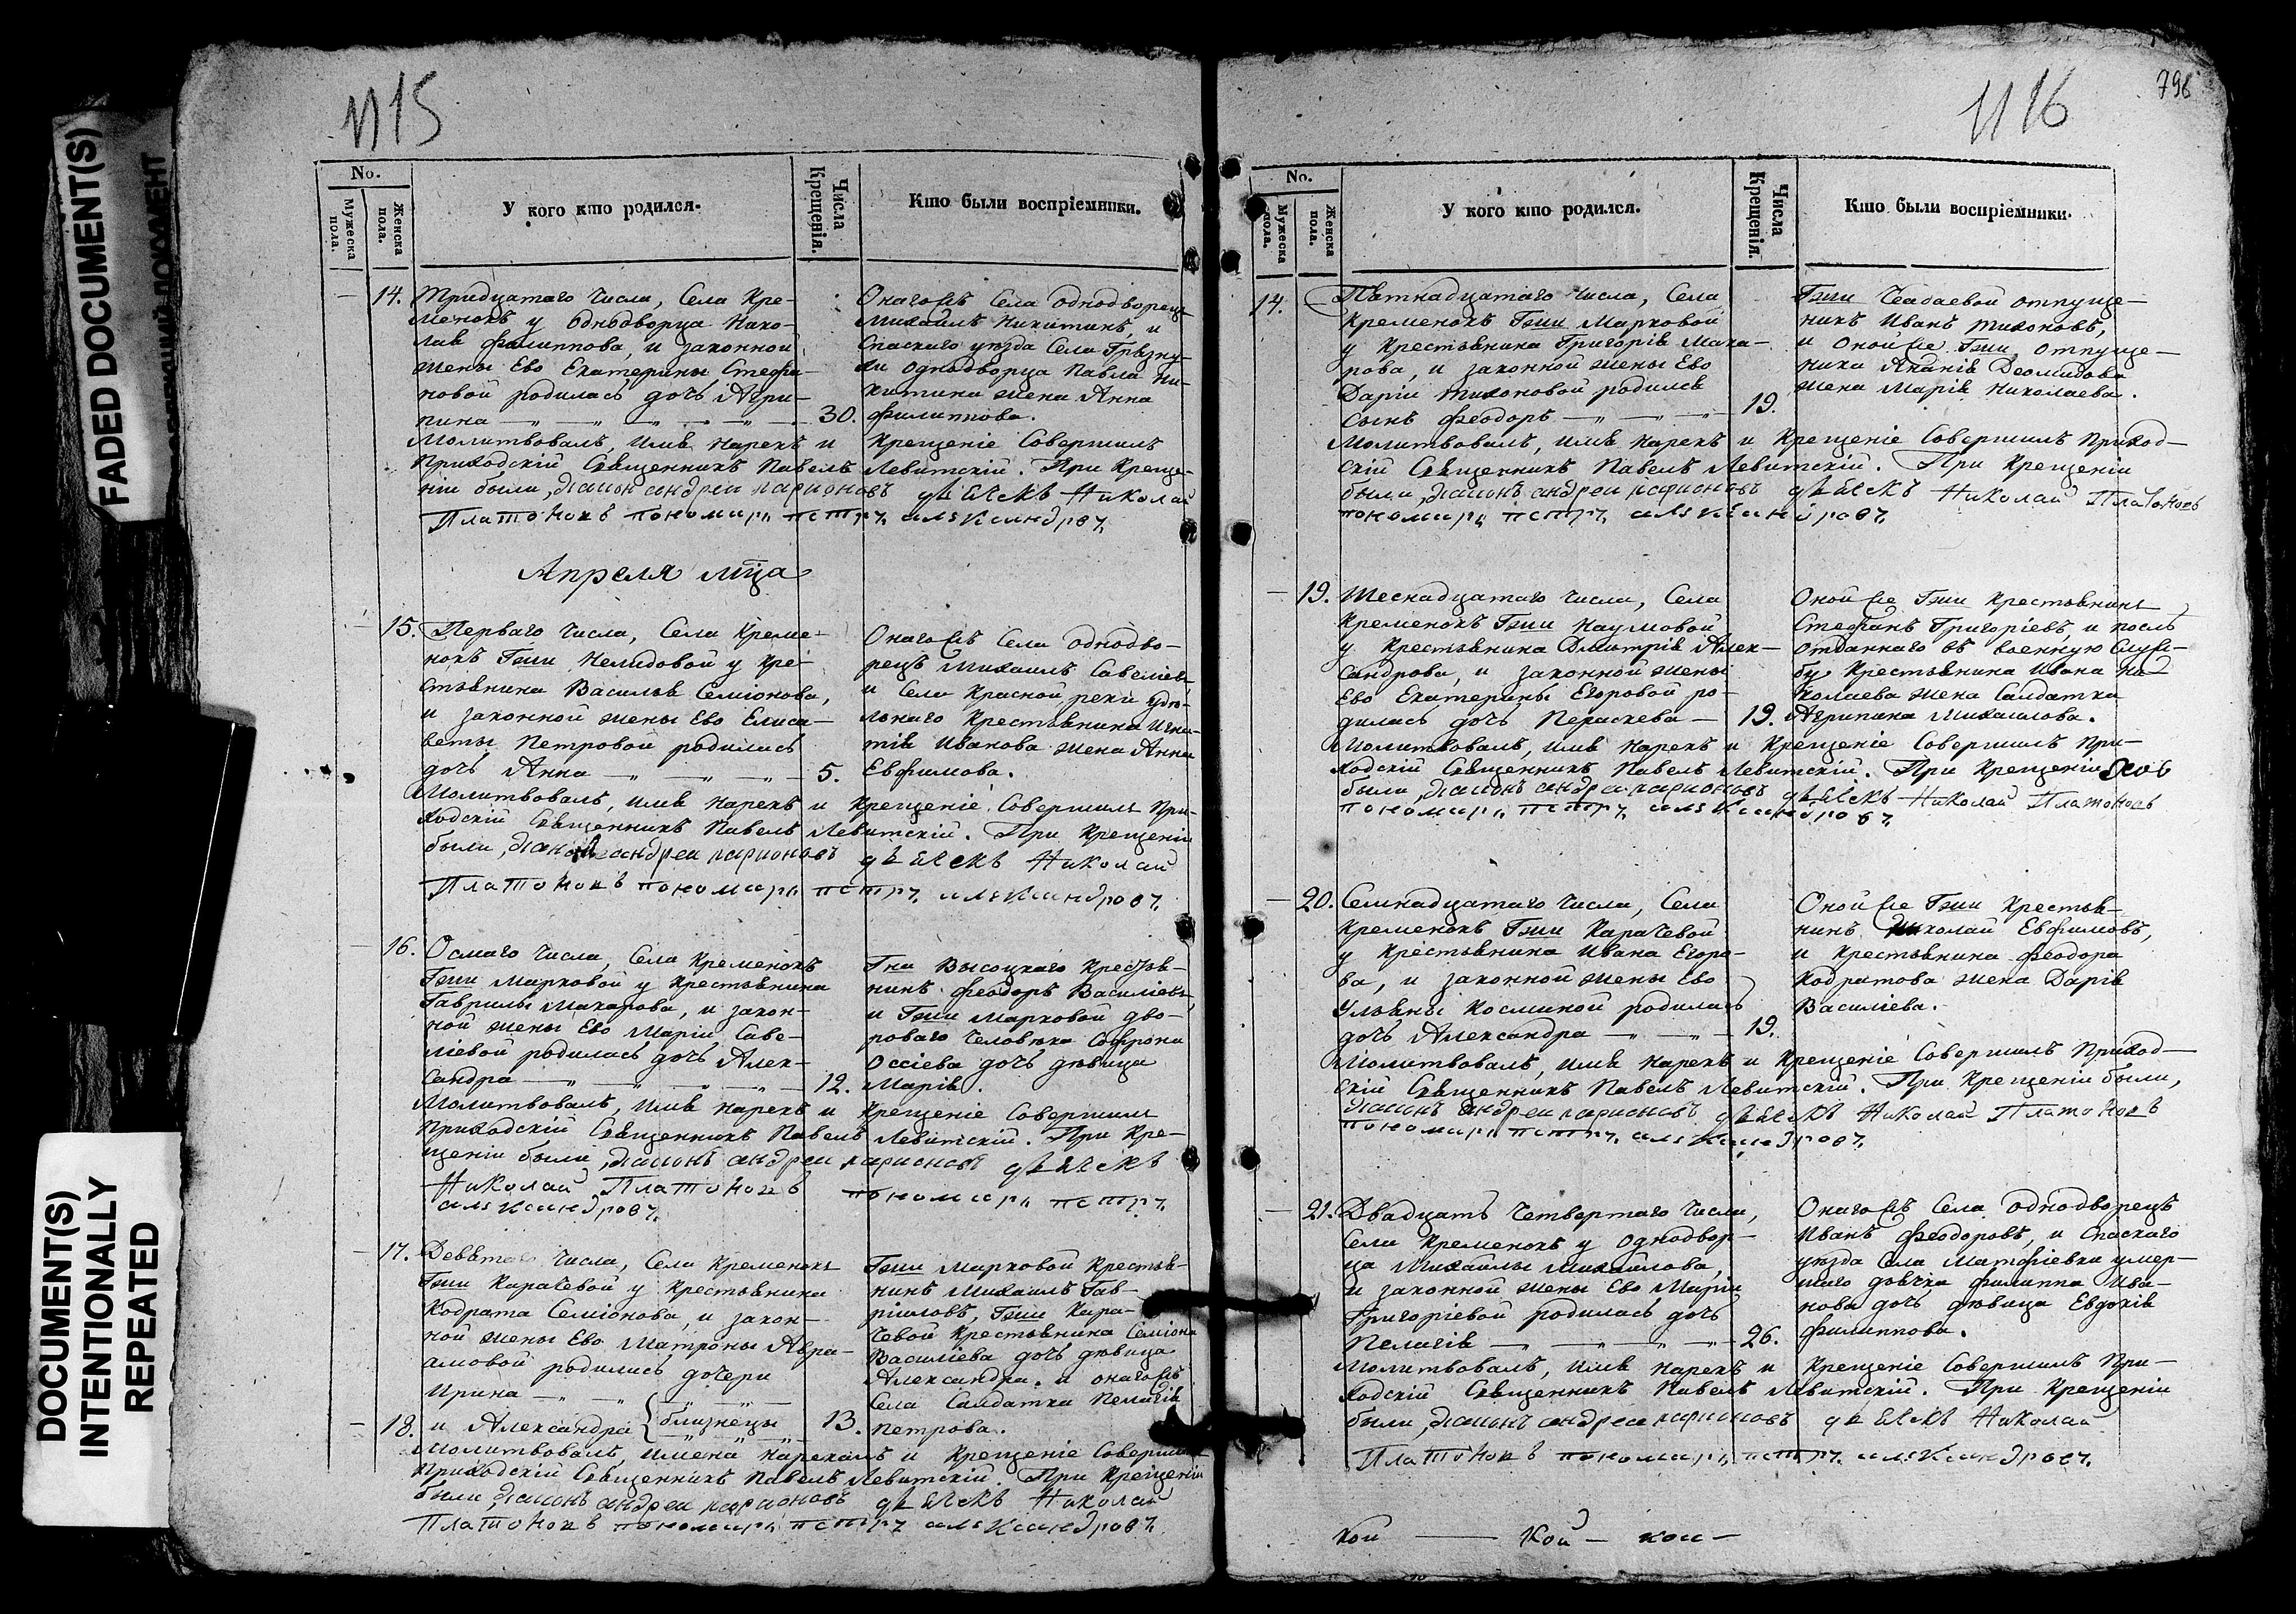 FADED DOCUMENT(S)
DOCUMENT(S)
INTENTIONALLY
REPEATED
1115
No.
Мужеска пола.
Женска пола.
У кого кто родился.
Числа Крещенія.
Кто были воспріемники.
14. Тридцатаго Числа, Села Кре-
менокъ у Однодворца Нико-
лая филиппова, и законной
жены Ево Екатерины Стефа-
новой родилась дочь Агри-
пина 30.
Онагожъ Села однодворецъ
Михаилъ Никитинъ, и
Спаскаго уѣзда Села Грязну-
хи однодворца Павла Ни-
китина жена Анна
филиппова.
Молитвовалъ, имя нарекъ и Крещеніе Совершилъ
Приходскій Священникъ Павелъ Левитскій. При Креще-
ніи были, диаконъ андреи ларионовъ дьячекъ Николай
Платоновъ пономарь петръ александровъ
Апреля мца
15. Перваго Числа, Села Креме-
нокъ Гжи Нелидовой у Кре-
стьянина Василья Семіонова,
и законной жены Ево Елиса-
веты Петровой родилась
дочь Анна 5.
Онагожъ Села однодво-
рецъ Михаилъ Савеліевъ
и Села Красной реки удѣ-
льнаго Крестьянина Игна-
тія Иванова жена Анна
Евфимова.
Молитвовалъ, имя нарекъ и Крещеніе Совершилъ При-
ходскій Священникъ Павелъ Левитскій. При Крещеніи
были, андреи ларионовъ дьячекъ Николай
Платоновъ пономарь петръ александровъ
16. Осмаго Числа, Села Кременокъ
Гжи Марковой у Крестьянина
Гаврилы Макарова, и закон-
ной жены Ево Маріи Саве-
ліевой родилась дочь Алек-
сандра 12.
Гна Высоцкаго Крестья-
нинъ феодоръ Василіевъ,
и Гжи Марковой дво-
роваго Человѣка Софрона
Оссіева дочь дѣвица
Марія.
Молитвовалъ, имя нарекъ и Крещеніе Совершилъ
Приходскій Священникъ Павелъ Левитскій. При Кре-
щеніи были, диаконъ андреи ларионовъ дьячекъ
Николай Платоновъ пономарь петръ
александровъ
17. Девятаго Числа, Села Кременокъ
Гжи Карачевой у Крестьянина
Кодрата Семіонова, и закон-
ной жены Ево Матроны Авра-
амовой родились дочери
Ирина
18. и Александра близнецы 13.
Гжи Марковой Крестья-
нинъ Михаилъ Гав-
ріиловъ, Гжи Кара-
чевой Крестьянина Семіона
Василіева дочь дѣвица
Александра. и онагожъ
Села Салдатка Пелагія
Петрова.
Молитвовалъ, имена нарекалъ и Крещеніе Совершилъ
Приходскій Священникъ Павелъ Левитскій. При Крещеніи
были, диаконъ андреи ларионовъ дьячекъ Николай
Платоновъ пономарь петръ александровъ
1116
798
No.
Мужеска пола.
Женска пола.
У кого кто родился.
Числа Крещенія.
Кто были воспріемники.
14. Пятнадцатаго Числа, Села
Кременокъ Гжи Марковой
у Крестьянина Григорія Мака-
рова, и законной жены Ево
Даріи Тихоновой родился
Сынъ феодоръ 19.
Гжи Чеадаевой отпуще-
никъ Иванъ Тихоновъ,
и Оной же Гжи отпуще-
ника Ананія Деомидова
жена Марія Николаева.
Молитвовалъ, имя нарекъ и Крещеніе Совершилъ Приход-
скій Священникъ Павелъ Левитскій. При Крещеніи
были, диаконъ андреи ларионовъ дьячекъ Николай Платоновъ
пономарь петръ александровъ
19. Шеснадцатаго Числа, Села
Кременокъ Гжи Наумовой
у Крестьянина Дмитрія Алек-
сандрова, и законной жены
Ево Екатерины Егоровой ро-
дилась дочь Параскева 19.
Оной же Гжи Крестьянинъ
Стефанъ Григоріевъ, и послѣ
отданнаго въ военную Служ-
бу Крестьянина Ивана Ни-
колаева жена Салдатка
Агрипина Михаилова.
Молитвовалъ, имя нарекъ и Крещеніе Совершилъ При-
ходскій Священникъ Павелъ Левитскій. При Крещеніи
были, диаконъ андреи ларионовъ дьячекъ Николай Платоновъ
пономарь петръ александровъ
20. Семнадцатаго Числа, Села
Кременокъ Гжи Карачевой
у Крестьянина Ивана Егоро-
ва, и законной жены Ево
Ульяны Косминой родилась
дочь Александра 19.
Оной же Гжи Крестья-
нинъ Николай Евфимовъ,
и Крестьянина феодора
Кодратова жена Дарія
Василіева.
Молитвовалъ, имя нарекъ и Крещеніе Совершилъ Приход-
скій Священникъ Павелъ Левитскій. При Крещеніи были,
диаконъ андреи ларионовъ дьячекъ Николай Платоновъ
пономарь петръ александровъ
21. Двадцать Четвертаго Числа,
Села Кременокъ у Однодвор-
ца Михаилы Михаилова,
и законной жены Ево Маріи
Григоріевой родилась дочь
Пелагія 26.
Онагожъ Села однодворецъ
Иванъ Феодоровъ, и Спаскаго
уѣзда Села Матфіевки умер-
шаго дьячка филиппа Ива-
нова дочь дѣвица Евдокія
филиппова.
Молитвовалъ, имя нарекъ и Крещеніе Совершилъ При-
ходскій Священникъ Павелъ Левитскій. При Крещеніи
были, диаконъ андреи ларионовъ дьячекъ Николай
Платоновъ пономарь петръ александровъ
кой — кой — кои —